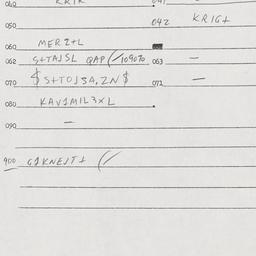 040 KRIK 041
050
042 KRIG+
060 MER2+L
062 S+TAJSL QAP (/109070 063 —
070 $S+TOJ3A,2N$ 072 —
080 KAV1MIL3XL
090 —
900 G1KNEJT+ (/